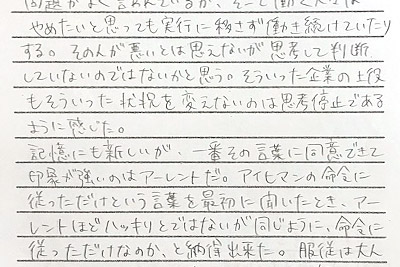 問題がよく言われているが、そこで働く人々は
やめたいと思っても実行に移さず働き続けていたり
する。その人が悪いとは思えないが思考して判断
していないのではないかと思う。そういった企業の上役
もそういった状況を変えないのは思考停止である
ように感じた。
記憶にも新しいが、一番その言葉に同意できて
印象が強いのはアーレントだ。アイヒマンの命令に
従っただけという言葉を最初に聞いたとき、アー
レントほどハッキリとではないが同じように、命令に
従っただけなのか、と納得出来た。服従は大人